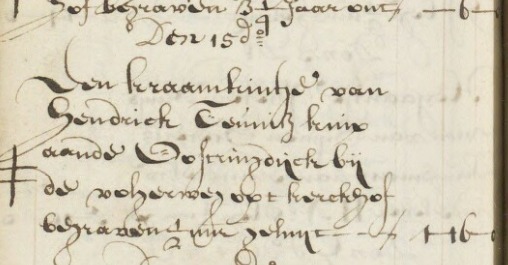 hof begraven 3 Jaar out 6
Den 15 d°
Een kraamkintje van
Hendrick Teunisz kuip
aande Oostsingdijck bij
de opt kerckhof
begraven uur geluijt 6